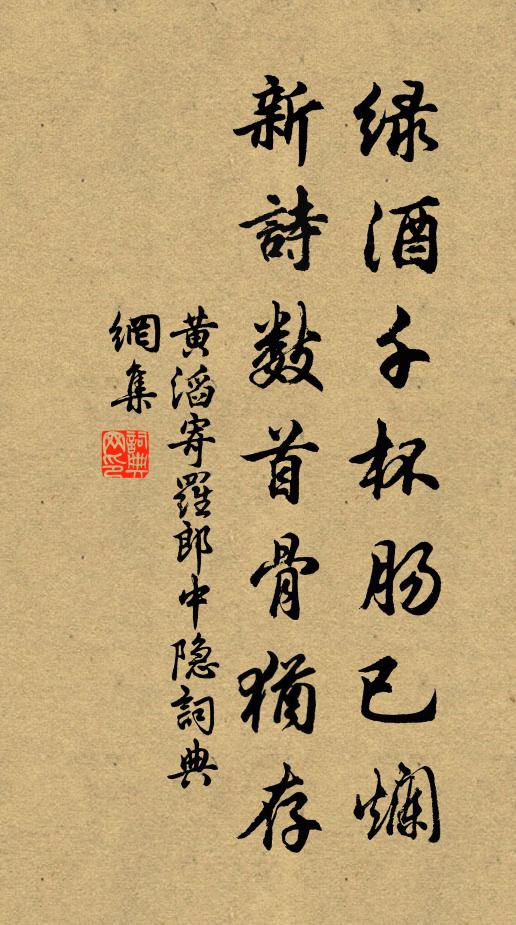 绿酒千杯肠已爛
新詩数首骨猶存
黄滔寄羅郎中隐詞典
網集
詞典網印